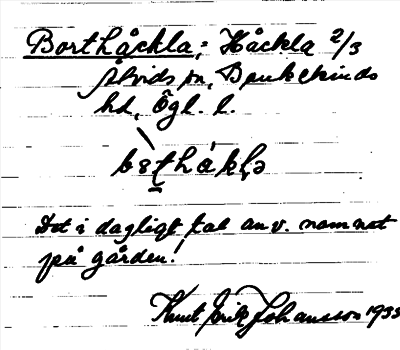 Borthåckla, = Håckla 2/3
Åtvids sn, Bankekinds
hd, Ögl. l.
Det i dagligt tal anv. namnet
på gården!
Knut Erik Johansson 1933